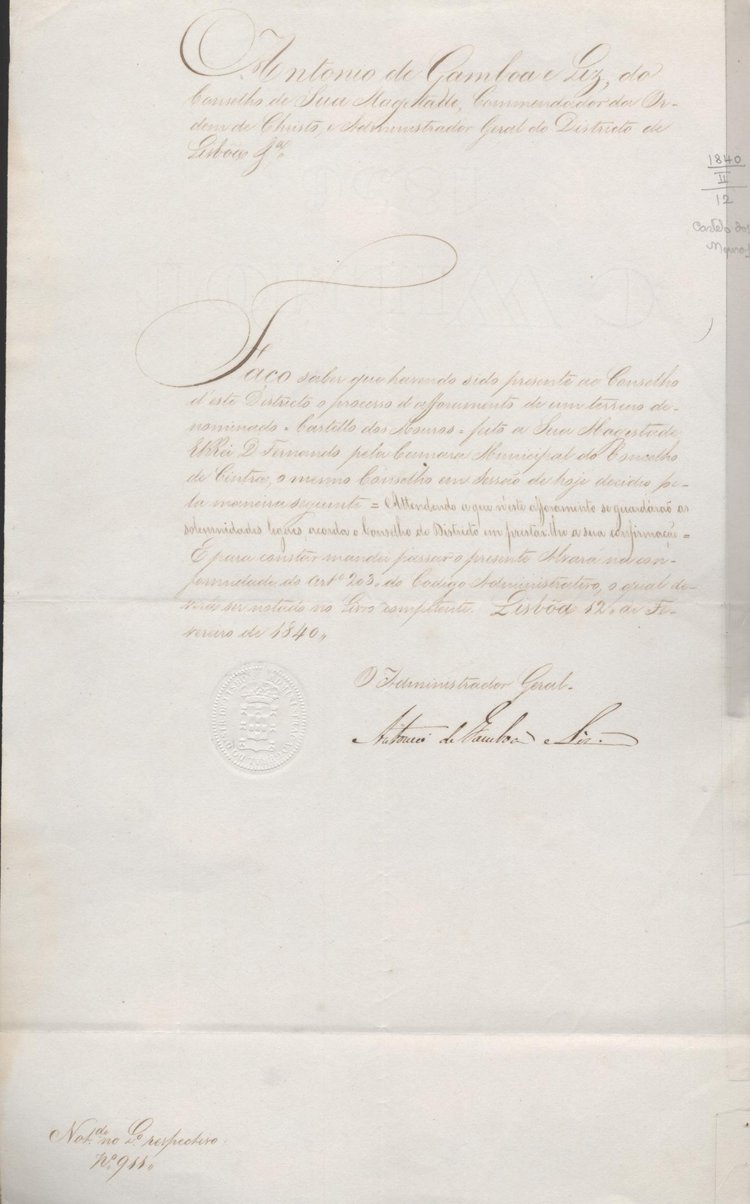 Antonio de Gamboa e Liz, do
Conselho de Sua Magestade, Commendador da Or-
dem de Christo, e Administrador Geral do Districto de
Lisbôa &ª.
1840
II
12
Castelo dos
Mouros
Faço saber que havendo sido presente ao Conselho
d'este Districto o processo d'afforamento de um terreno de-
nominado = Castello dos Mouros = feito a Sua Magestade
ElRei D. Fernando pela Camara Municipal do Concelho
de Cintra, o mesmo Conselho em Sessão de hoje decidio pe-
la maneira seguinte = Attendendo a que n'este afforamento se guardárão as
solemnidades legaes, acorda o Conselho de Districto em prestar-lhe a sua confirmação =
E para constar mandei passar o presente Alvará na con-
formidade do artº 203. do Codigo Administrativo, o qual de-
verá ser notado no Livro competente. Lisbôa 12. de Fe-
vereiro de 1840.
O Administrador Geral.
Antonio de Gamboa e Liz.
Notdo no Lº respectivo
Nº 911.